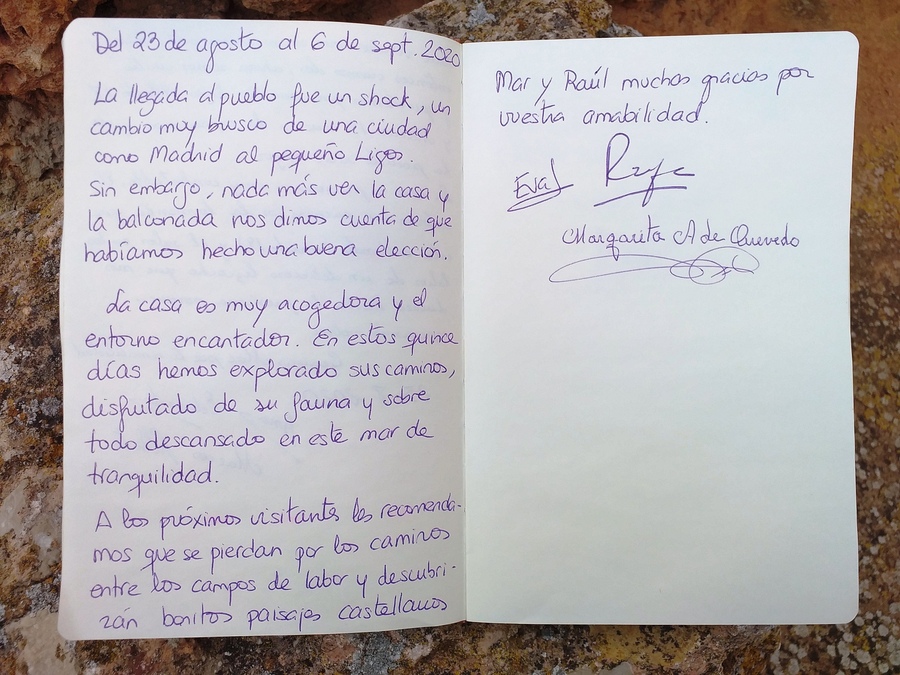 Del 23 de agosto al 6 de sept. 2020
La llegada al pueblo fue un shock, un
cambio muy brusco de una ciudad
como Madrid al pequeño Ligos.
Sin embargo, nada más ver la casa y
la balconada nos dimos cuenta de que
habíamos hecho una buena elección.
La casa es muy acogedora y el
entorno encantador. En estos quince
días hemos explorado sus caminos,
disfrutado de su fauna y sobre
todo descansado en este mar de
tranquilidad.
A los próximos visitantes les recomenda-
mos que se pierdan por los caminos
entre los campos de labor y descubri-
rán bonitos paisajes castellanos
Mar y Raúl muchas gracias por
vuestra amabilidad.
Eva
Margarita A de Quevedo